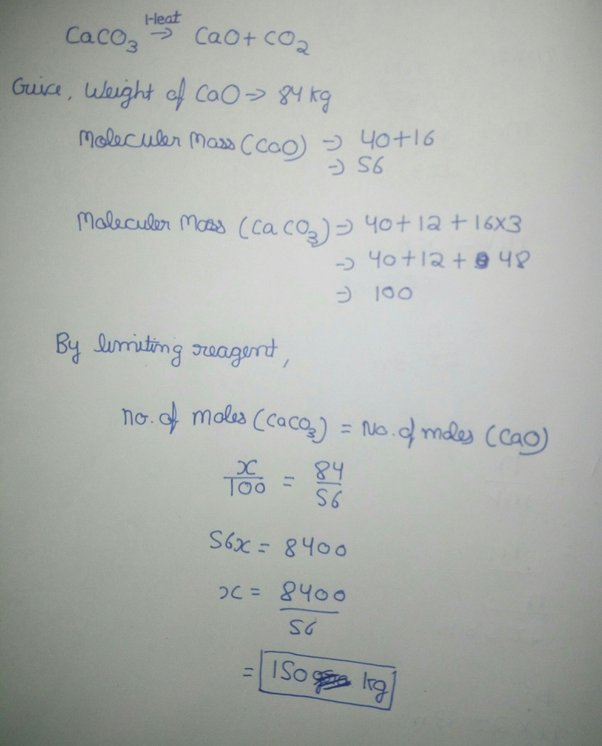 Heat
CaCO₃ → CaO + CO₂
Guice, Weight of CaO → 84 kg
Moleculer Mass (CaO) → 40+16
→ 56
Moleculer Mass (CaCO₃) → 40+12+16×3
→ 40+12+ 48
→ 100
By limiting reagent,
No. of moles (CaCO₃) = No. of moles (CaO)
x/100 = 84/56
56x = 8400
x = 8400/56
= 150 kg